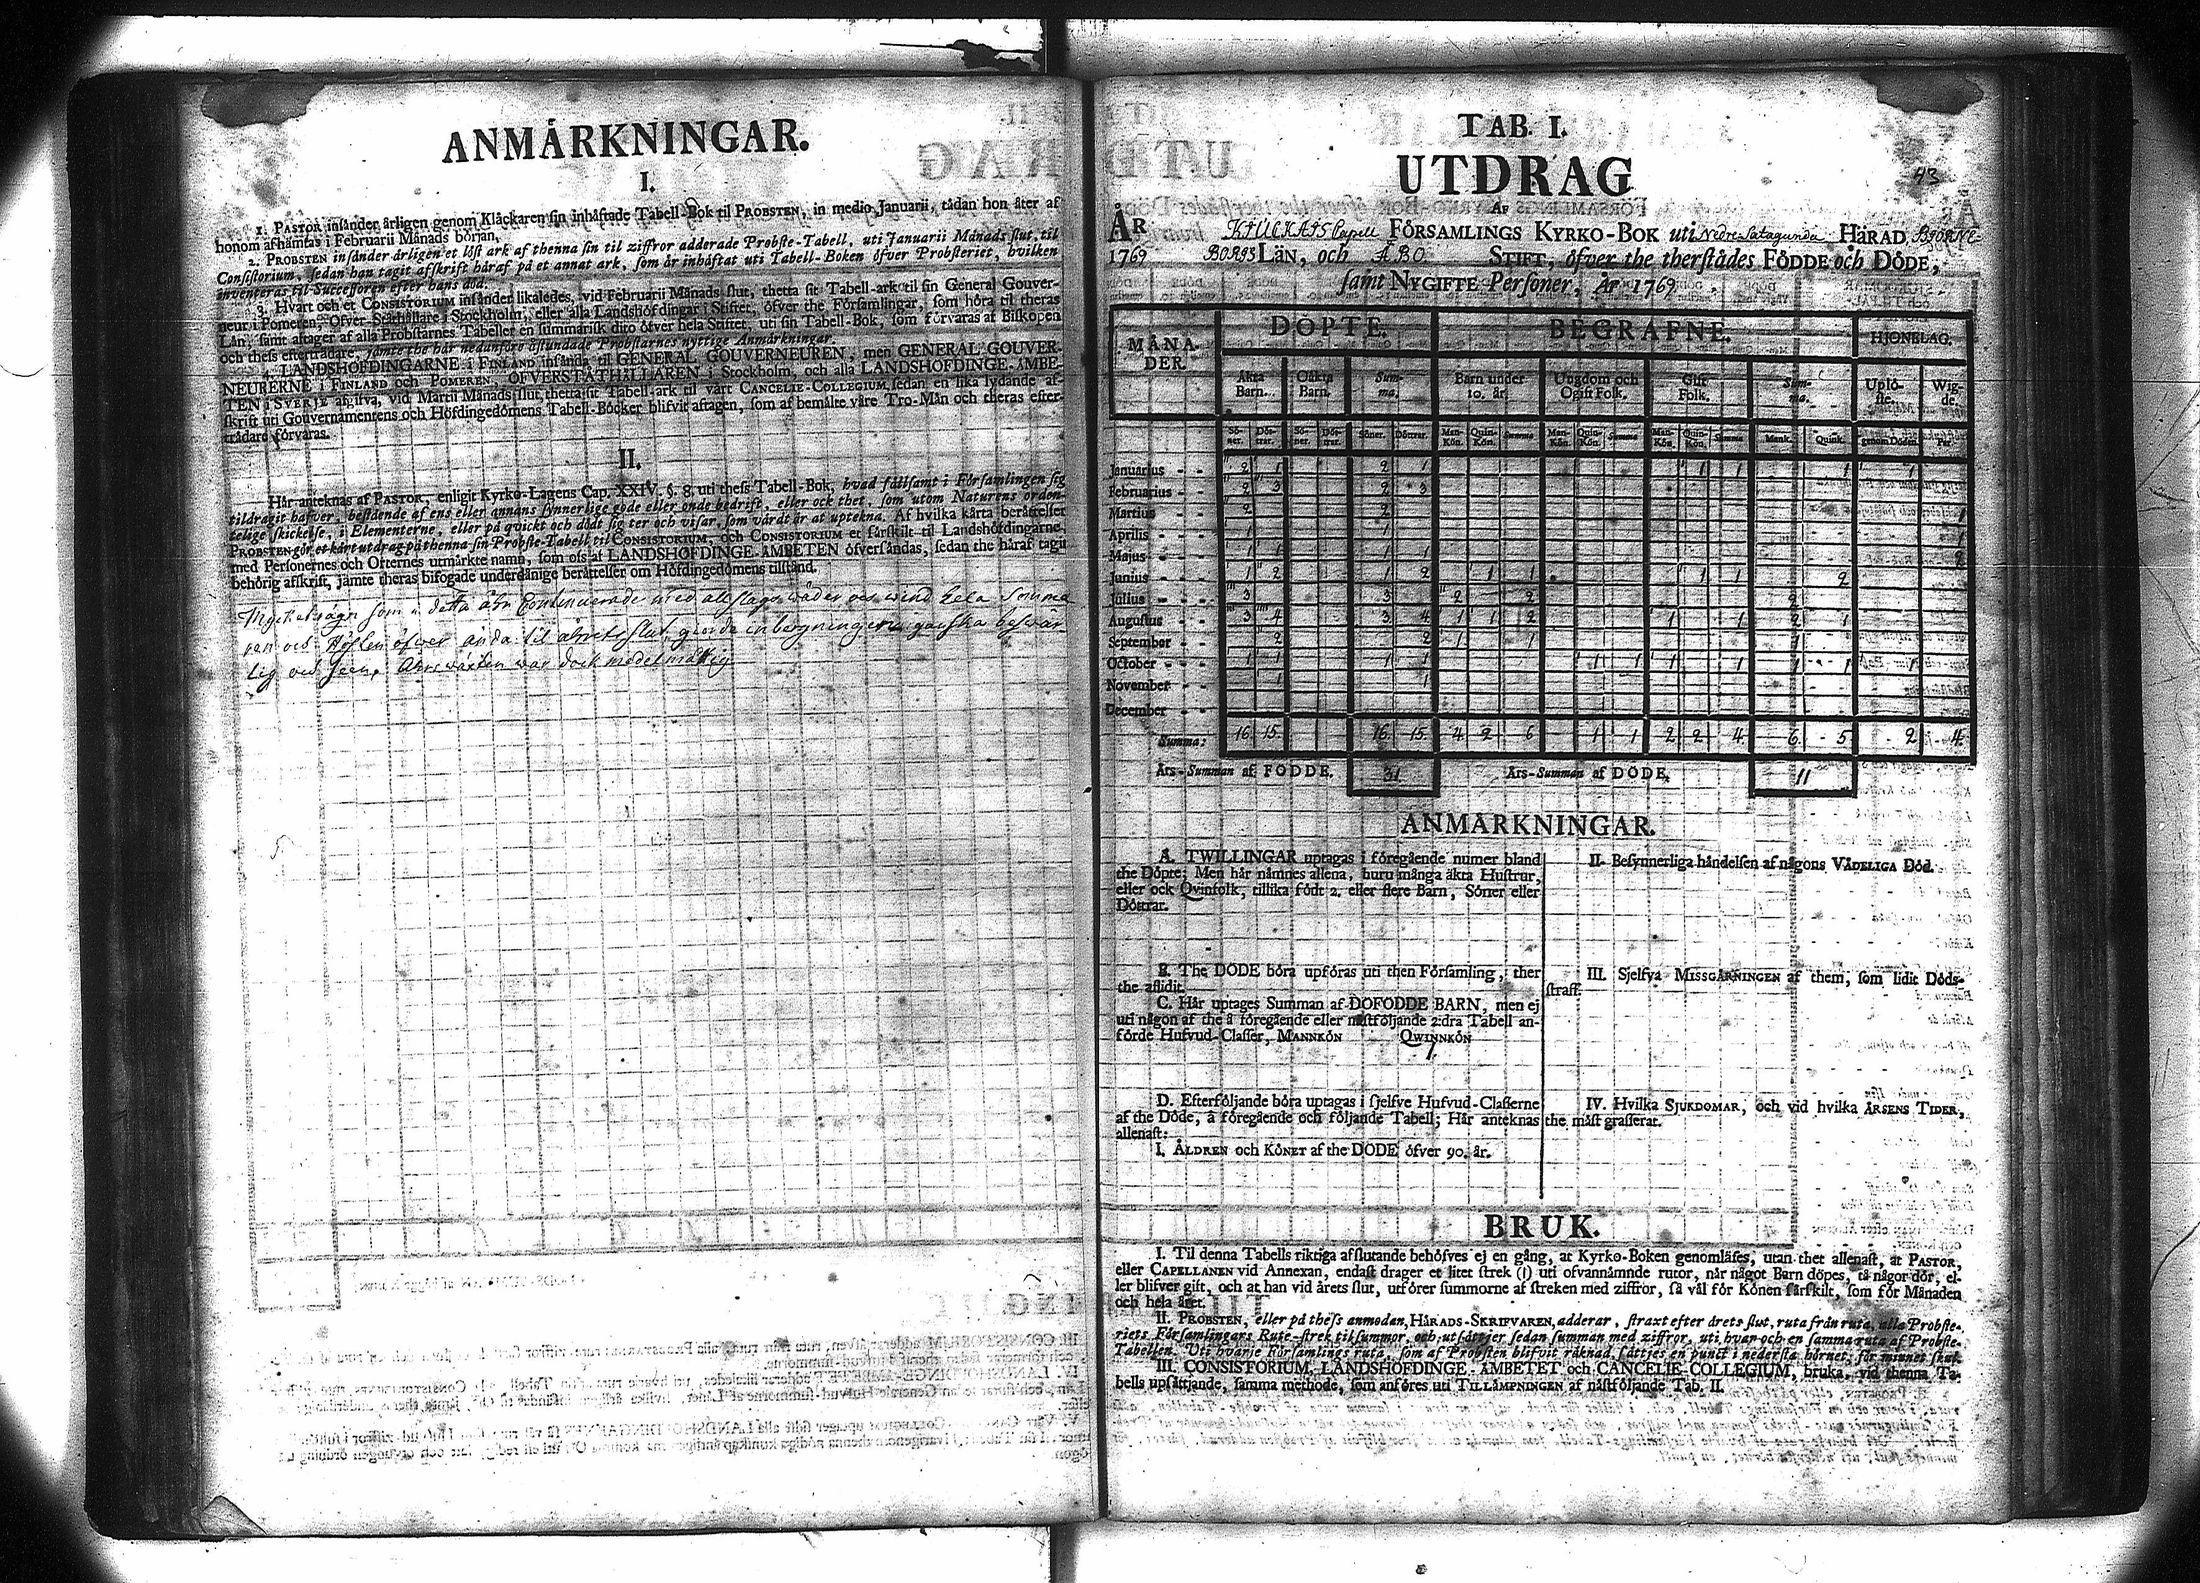 ANMÅRKNINGAR.
I.
1. PASTOR insånder årligen genom Klåckaren sin inhåftade Tabell-Bok til PROBSTEN, in medio Januarii, tådan hon åter af
honom afhåmtas i Februarii Månads början.
2. PROBSTEN insånder årligen et löst ark af thenna sin til ziffror adderade Probste-Tabell, uti Januarii Månads slut, til
Consistorium, sedan han tagit afskrift håraf på et annat ark, som år inhåftat uti Tabell-Boken öfver Probsteriet, hvilken
inventeras til Successoren efter hans död.
3. Hvart och et CONSISTORIUM insånder likaledes, vid Februarii Månads slut, thetta sit Tabell-ark til sin General Gouver-
neur i Pomeren, Öfver-Ståthållare i Stockholm, eller alla Landshöfdingar i Stiftet, öfver the Församlingar, som höra til theras
Lån, samt aftager af alla Probstarnes Tabeller en summarisk dito öfver hela Stiftet, uti sin Tabell-Bok, som förvaras af Biskopen
och thess eftertrådare, jämte the hår nedanföre åstundade Probstarnes nyttige Anmårkningar.
4. LANDSHÖFDINGARNE i FINLAND insånda til GENERAL GOUVERNEUREN, men GENERAL GOUVER-
NEURERNE i FINLAND och POMEREN, ÖFVERSTÅTHÅLLAREN i Stockholm, och alla LANDSHÖFDINGE-ÅMBE-
TEN i SVERJE afgifva, vid Martii Månads slut, thetta sit Tabell-ark til vårt CANCELIE-COLLEGIUM, sedan en lika lydande af-
skrift uti Gouvernamentens och Höfdingedömens Tabell-Böcker blifvit aftagen, som af bemålte våre Tro-Mån och theras efter-
trådare förvaras.
II.
Hår anteknas af PASTOR, enligit Kyrko-Lagens Cap. XXIV. §. 8. uti thess Tabell-Bok, hvad fållsamt i Församlingen sig
tildragit hafver, bestående af ens eller annans synnerlige gode eller onde bedrift, eller ock thet, som utom Naturens orden-
telige skickelse, i Elementerne, eller på qvickt och dödt sig ter och visar, som vårdt år at uptekna. Af hvilka kårta beråttelser
PROBSTEN gör et kårt utdrag på thenna sin Probste-Tabell til CONSISTORIUM, och CONSISTORIUM et sårskilt til Landshöfdingarne,
med Personernes och Orternes utmårkte namn, som oss af LANDSHÖFDINGE-ÅMBETEN öfversåndas, sedan the håraf tagit
behörig afskrift, jämte theras bifogade underdånige beråttelser om Höfdingedömens tillstånd.
som i detta åhr Continuerade med
och Hösten öfver ånda til åhrets slut, giorde inbergningen ganska beswär-
lig och seen, Åhrswäxten war dock medelmåttig
TAB. I.
UTDRAG
43
AF
ÅR KIULKAIS Capell FÖRSAMLINGS KYRKO-BOK uti Nedre Satagunda HÅRAD, BJÖRNE-
1769 BORGS LÄN, och ÅBO STIFT, öfver the therstådes FÖDDE och DÖDE,
samt NYGIFTE Personer, År 1769.
MÅNA-DER. DÖPTE. BEGRAFNE. HJONELAG.
Åkta Barn. Oåkta Barn. Summa. Barn under 10. år. Ungdom och Ogift Folk. Gift Folk. Summa. Uplöste. Wigde.
Söner. Döttrar. Söner. Döttrar. Söner. Döttrar. Man-Kön. Quin-Kön. Summa Man-Kön. Quin-Kön. Summa Man-Kön. Quin-Kön. Summa Mank. Quink. genom Döden. Par.
Januarius - - 2 1 2 1 1 1 1 1
Februarius - - 2 3 2 3
Martius - - 2 2 1
Aprilis - - 1 1 1
Majus - - 1 1 1 1 2
Junius - - 1 2 1 2 1 1 1 1 2
Julius - - 3 3 2 2 2
Augustus - - 3 4 3 4 1 1 2 1 1 2 1
September - - 2 2 1 1 1
October - - 1 1 1 1 1 1 1 1 1 1 1
November - - 1 1
December - -
Summa: 16 15 16 15 4 2 6 1 1 2 2 4 6 5 2 4
Års-Summan af FÖDDE. 31 Års-Summan af DÖDE. 11
ANMÅRKNINGAR.
A. TWILLINGAR uptagas i föregående numer bland
the Döpte; Men hår nåmnes allena, huru många åkta Hustrur,
eller ock Qvinfolk, tillika födt 2. eller flere Barn, Söner eller
Döttrar.
B. The DÖDE böra upföras uti then Församling, ther
the aflidit.
C. Hår uptages Summan af DÖFÖDDE BARN, men ej
uti någon af the å föregående eller nåstföljande 2:dra Tabell an-
förde Hufvud-Classer, MANNKÖN QWINNKÖN
1.
D. Efterföljande böra uptagas i sjelfve Hufvud-Classerne
af the Döde, å föregående och följande Tabell; Hår anteknas
allenast:
I. ÅLDREN och KÖNET af the DÖDE öfver 90. år.
II. Besynnerliga håndelsen af någons VÅDELIGA Död.
III. Sjelfva MISSGÅRNINGEN af them, som lidit Döds-
straff.
IV. Hvilka SJUKDOMAR, och vid hvilka ÅRSENS TIDER,
the måst grasserat.
BRUK.
I. Til denna Tabells riktiga afslutande behöfves ej en gång, at Kyrko-Boken genomläses, utan thet allenast, at PASTOR,
eller CAPELLANEN vid Annexan, endast drager et litet strek (|) uti ofvannåmnde rutor, når något Barn döpes, tå någor dör, el-
ler blifver gift, och at han vid årets slut, utförer summorne af streken med ziffror, så vål för Könen sårskilt, som för Månaden
och hela året.
II. PROBSTEN, eller på thess anmodan, HÅRADS-SKRIFVAREN, adderar, straxt efter årets slut, ruta från ruta, alla Probste-
riets Församlingars Rute-strek tilsummor, och utsåttjer sedan summan med ziffror, uti hvar och en samma ruta af Probste-
Tabellen. Uti hvarje Församlings ruta, som af Probsten blifvit råknad, såttjes en punct i nedersta hörnet, för minnet skul.
III. CONSISTORIUM, LANDSHÖFDINGE-ÅMBETET och CANCELIE-COLLEGIUM, bruka, vid thenna Ta-
bells upsåttjande, samma methode, som anföres uti TILLÅMPNINGEN af nåstföljande Tab. II.